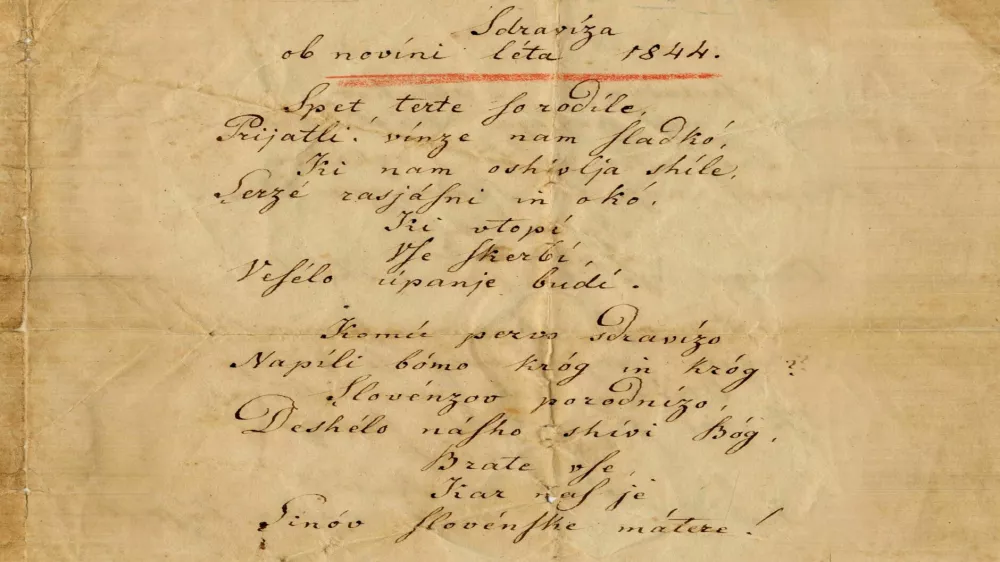 Sdravíza
ob novíni léta 1844.
Spet terte so rodíle,
Prijatli! vínze nam sladkó,
Ki nam oshívlja shíle,
Serzé rasjásni in okó.
Ki vtopí
Vse skerbí,
Vesélo úpanje budí.
Komú pervo sdravízo
Napíli bómo króg in króg?
Slovénzov porodnízo,
Deshélo násho shívi Bóg,
Brate vse,
Kar nas je
Sinóv slovénske mátere!